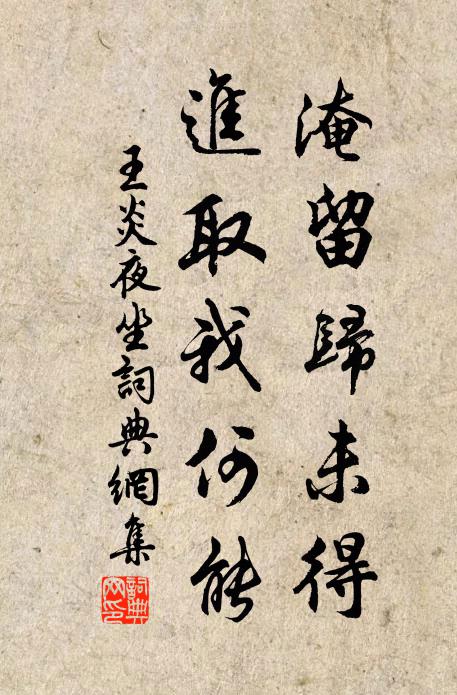 淹留歸未得
進取我何能
王炎夜坐詞典網集
詞典網印